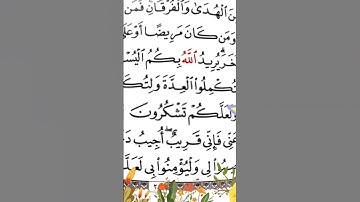 نَ ٱلْهُدَىٰ وَٱلْفُرْقَانِ فَمَن
وَمَن كَانَ مَرِيضًا أَوْ عَلَىٰ
خَرَ يُرِيدُ ٱللَّهُ بِكُمُ ٱلْيُسْ
تُكْمِلُوا۟ ٱلْعِدَّةَ وَلِتُكَ
وَلَعَلَّكُمْ تَشْكُرُونَ
عَنِّى فَإِنِّى قَرِيبٌ أُجِيبُ دَ
لِى وَلْيُؤْمِنُوا۟ بِى لَعَلَّ